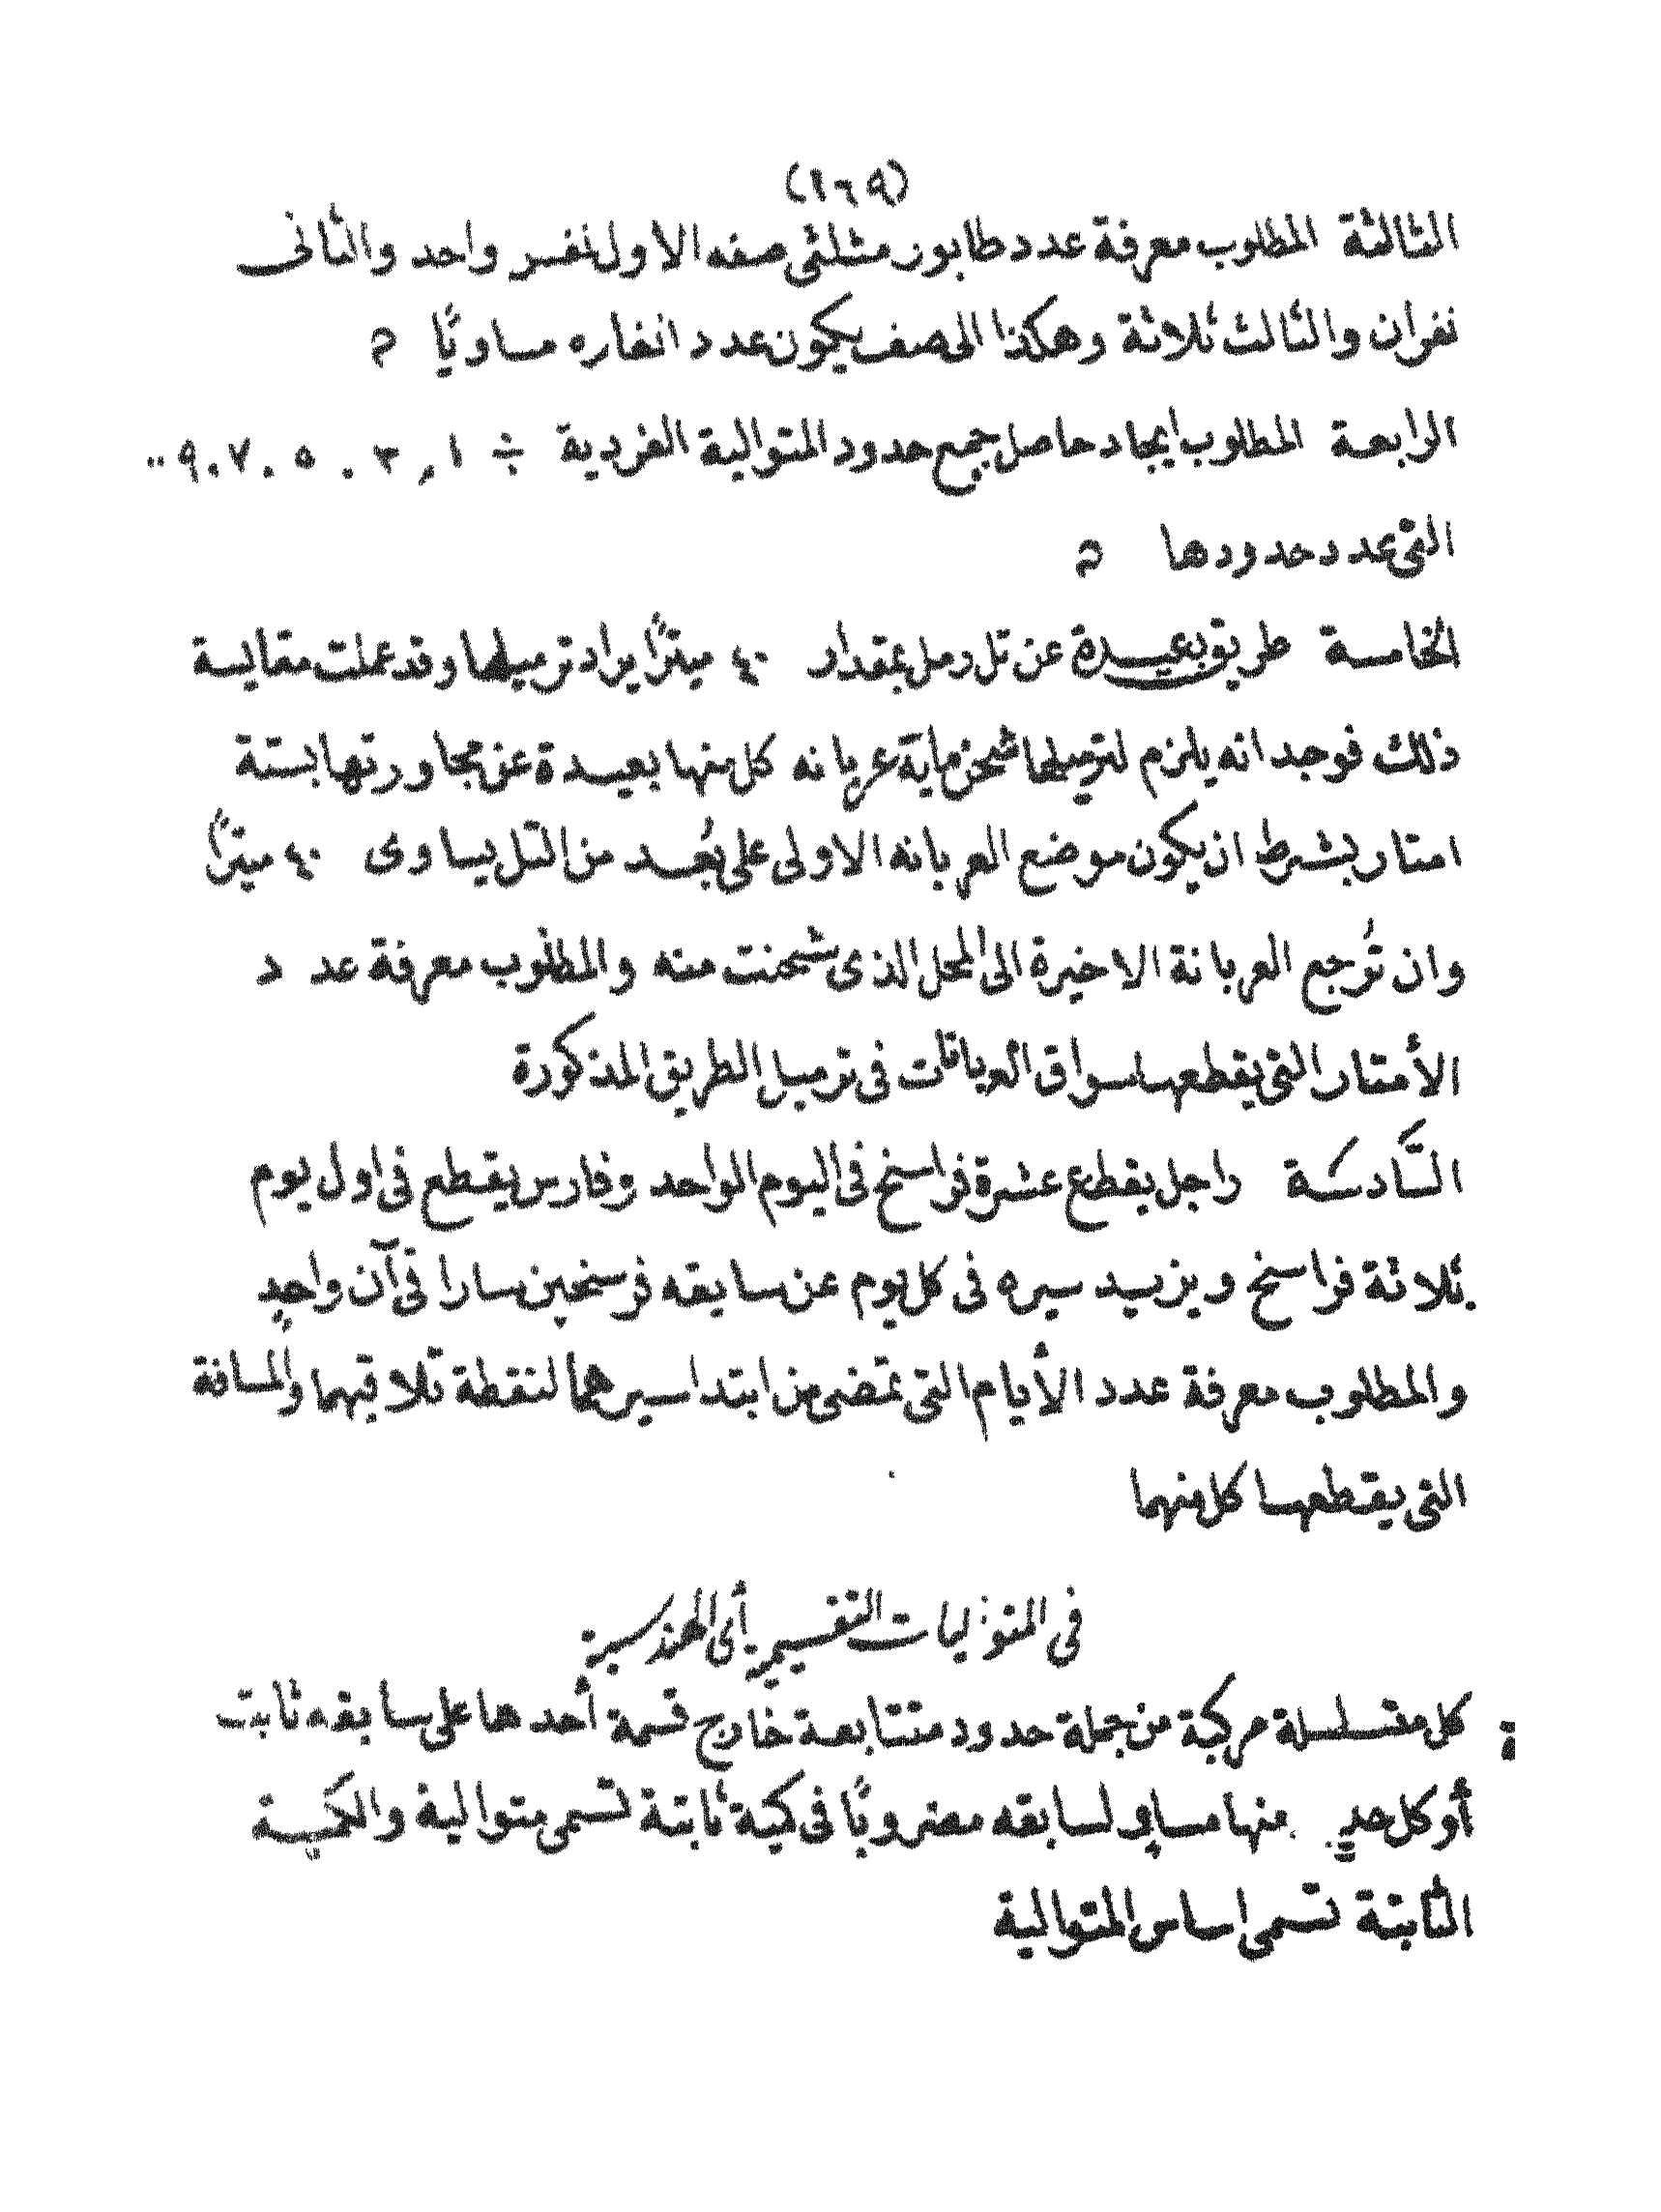 (١٦٩)
الثالثة المطلوب معرفة عدد طابور مثلثى صفه الاول نفر واحد والثانى
نفران والثالث ثلاثة وهكذا الى صف يكون عدد انفاره مساويًا م
الرابعة المطلوب ايجاد حاصل جمع حدود المتوالية الفردية ÷ ١ . ٣ . ٥ . ٧ . ٩ ..
التى عدد حدودها م
الخامسة طريق بعيدة عن تل رمل بمقدار ٤٠ ميترًا يراد ترميلها وقد عملت مقايسة
ذلك فوجد انه يلزم لترميلها شحن ماية عربانه كل منها بعيدة عن مجاورتها بستة
امتار بشرط ان يكون موضع العربانه الاولى على بُعد من التل يساوى ٤٠ ميترًا
وان تُرجع العربانة الاخيرة الى المحل الذى شحنت منه والمطلوب معرفة عدد
الأمتار التى يقطعها سواق العربانات فى ترميل الطريق المذكورة
السَّادسَة راجل يقطع عشرة فراسخ فى اليوم الواحد وفارس يقطع فى اول يوم
ثلاثة فراسخ ويزيد سيره فى كل يوم عن سابقه فرسخين سارا فى آن واحدٍ
والمطلوب معرفة عدد الأيام التى تمضى من ابتدا سيرهما لنقطة تلاقيهما والمسافة
التى يقطعها كل منهما
فى المتواليات التقسيمية أى الهندسية
كل متسلسلة مركبة من جملة حدود متتابعة خارج قسمة أحدها على سابقه ثابت
أو كل حدٍ منها مساوٍ لسابقه مضروبًا فى كمية ثابتة تسمى متوالية والكمية
الثابتة تسمى اساس المتوالية